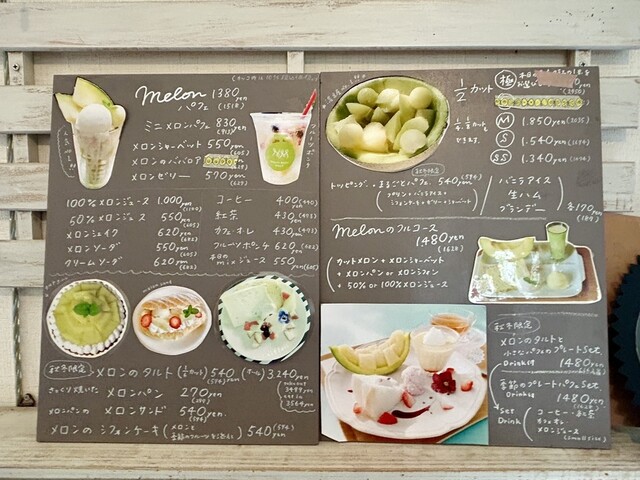 melon 1380yen
パフェ (1518)
ミニメロンパフェ 830yen
メロンシャーベット 550yen (605)
メロンのババロア
メロンゼリー 570yen (627)
100%メロンジュース 1,000yen
50%メロンジュース 550yen (605)
メロンシェイク 620yen (682)
メロンソーダ 550yen (605)
クリームソーダ 620yen (682)
コーヒー 400yen (440)
紅茶 430yen (473)
カフェ・オレ 430yen (473)
フルーツポンチ 620yen (682)
本日のmixジュース 550yen (605)
秋冬限定 メロンのタルト (1/8カット) 540yen (594) (ホール) 3,240yen
さっくり焼いた メロンパン 270yen (297)
メロンパンの メロンサンド 540yen (594)
メロンのシフォンケーキ (メロンと季節のフルーツを添えて) 540yen (594)
1/2カット
極
M 1.850yen (2035)
S 1.540yen (1694)
SS 1.340yen (1474)
1/4, 1/8カットもできます。
秋冬限定
トッピング・・まるごとパフェ 540yen (594)
バニラアイス
生ハム
ブランデー
各170yen (187)
Melonのフルコース
1480yen (1628)
カットメロン + メロンシャーベット
+ メロンパン or メロンシフォン
+ 50% or 100%メロンジュース
秋冬限定
メロンのタルトと
小さなパフェのプレートSet
Drink付 1480yen
季節のプレートパフェSet
Drink付 1480yen (1628)
Set Drink
コーヒー・紅茶
カフェオレ
メロンジュース
(small size)